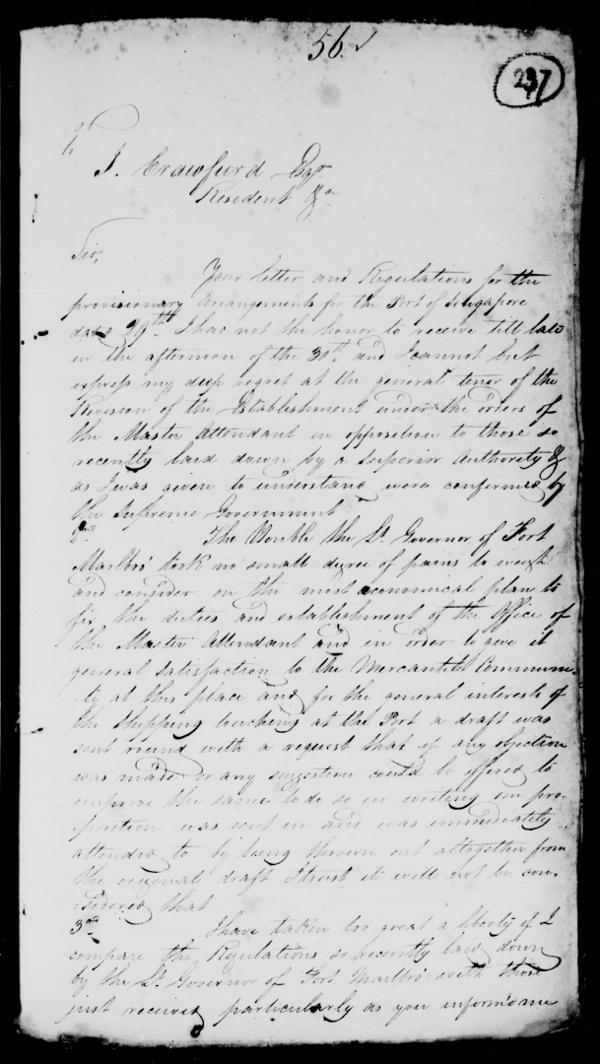 56.
237
To
J. Crawfurd Esqr
Resident &ca
Sir,
Your letter and Regulations for the
provisionary arrangements for the Port of Singapore
dated 29th I had not the honor to receive till late
in the afternoon of the 30th and I cannot but
express my deep regret at the general tenor of the
Revision of the Establishment under the orders of
the Master Attendant in opposition to those so
recently laid down by a Superior Authority &
as I was given to understand were confirmed by
the Supreme Government
2nd The Honble the Lt. Governor of Fort
Marlbro' took no small degree of pains to weigh
and consider on the most aconomical plan to
fix the duties and establishment of the Office of
the Master Attendant and in order to give it
general satisfaction to the Mercantile Commun-
-ity at this place and for the general interests of
the Shipping touching at the Port a draft was
sent round with a request that if any objection
was made or any suggestion could be offered to
improve the same to do so in writing one pro-
-position was sent in and was immediately
attended to by being thrown out altogether from
the original draft I trust it will not be con-
-sidered that
3rd I have taken too great a liberty if I
compare the Regulations so recently laid down
by the Lt. Governor of Fort Marlbro' with those
just received particularly as you inform'd me